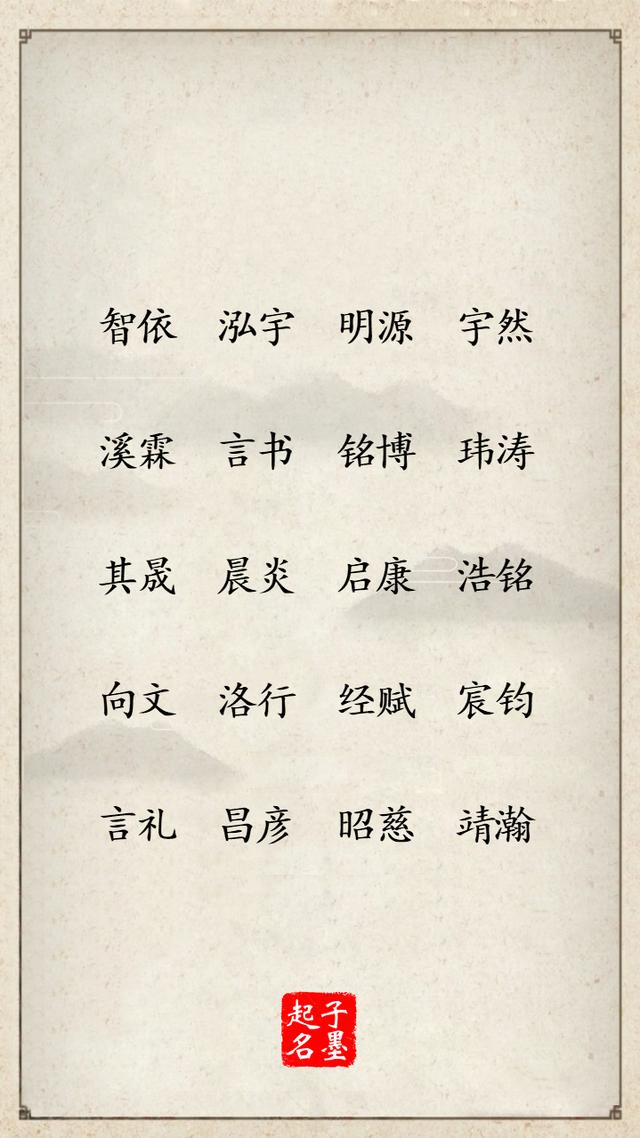 智依 泓宇 明源 宇然
溪霖 言书 铭博 玮涛
其晟 晨炎 启康 浩铭
向文 洛行 经赋 宸钧
言礼 昌彦 昭慈 靖瀚
子墨
起名